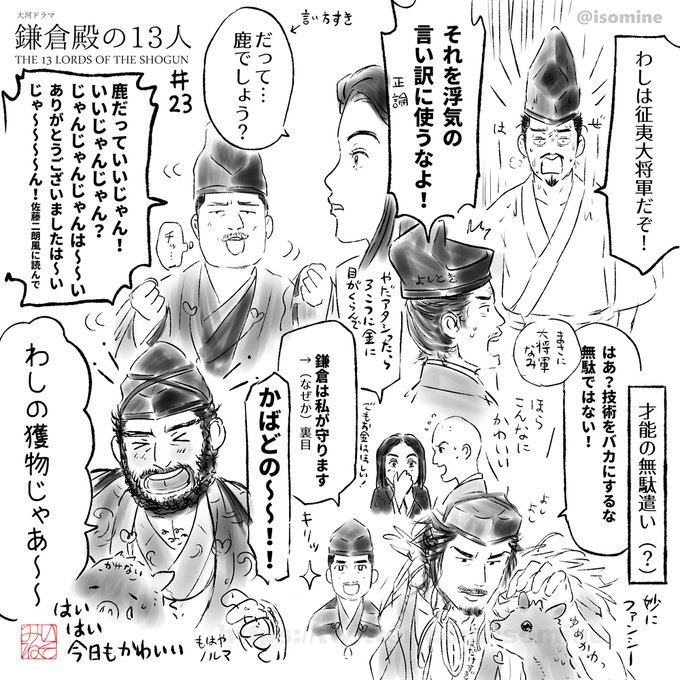 大河ドラマ
鎌倉殿の13人
THE 13 LORDS OF THE SHOGUN
#23
@isomine
わしは征夷大将軍だぞ！
ぜ
は
それを浮気の
言い訳に使うなよ！
正論
だって…
鹿でしょう？
←言い方すき
鹿だっていいじゃん！
いいじゃんじゃん？
じゃんじゃんじゃんは〜〜い
ありがとうございましたは〜い
じゃ〜〜〜〜ん！
佐藤二朗風に読んで
チッ…
よしとき
まさに
大将軍
なみ
はあ？技術をバカにするな
無駄ではない！
才能の無駄遣い（？）
ほら
こんなに
かわいい
やだアタシったら
目がくらんで
でもお金はほしい！
鎌倉は私が守ります
→（なぜか）裏目
かばどの〜〜！！
キリッ
わしの獲物じゃあ〜〜
はい
はい
今日もかわいい
もはや
ノルマ
よし
よし
妙に
ファンシー